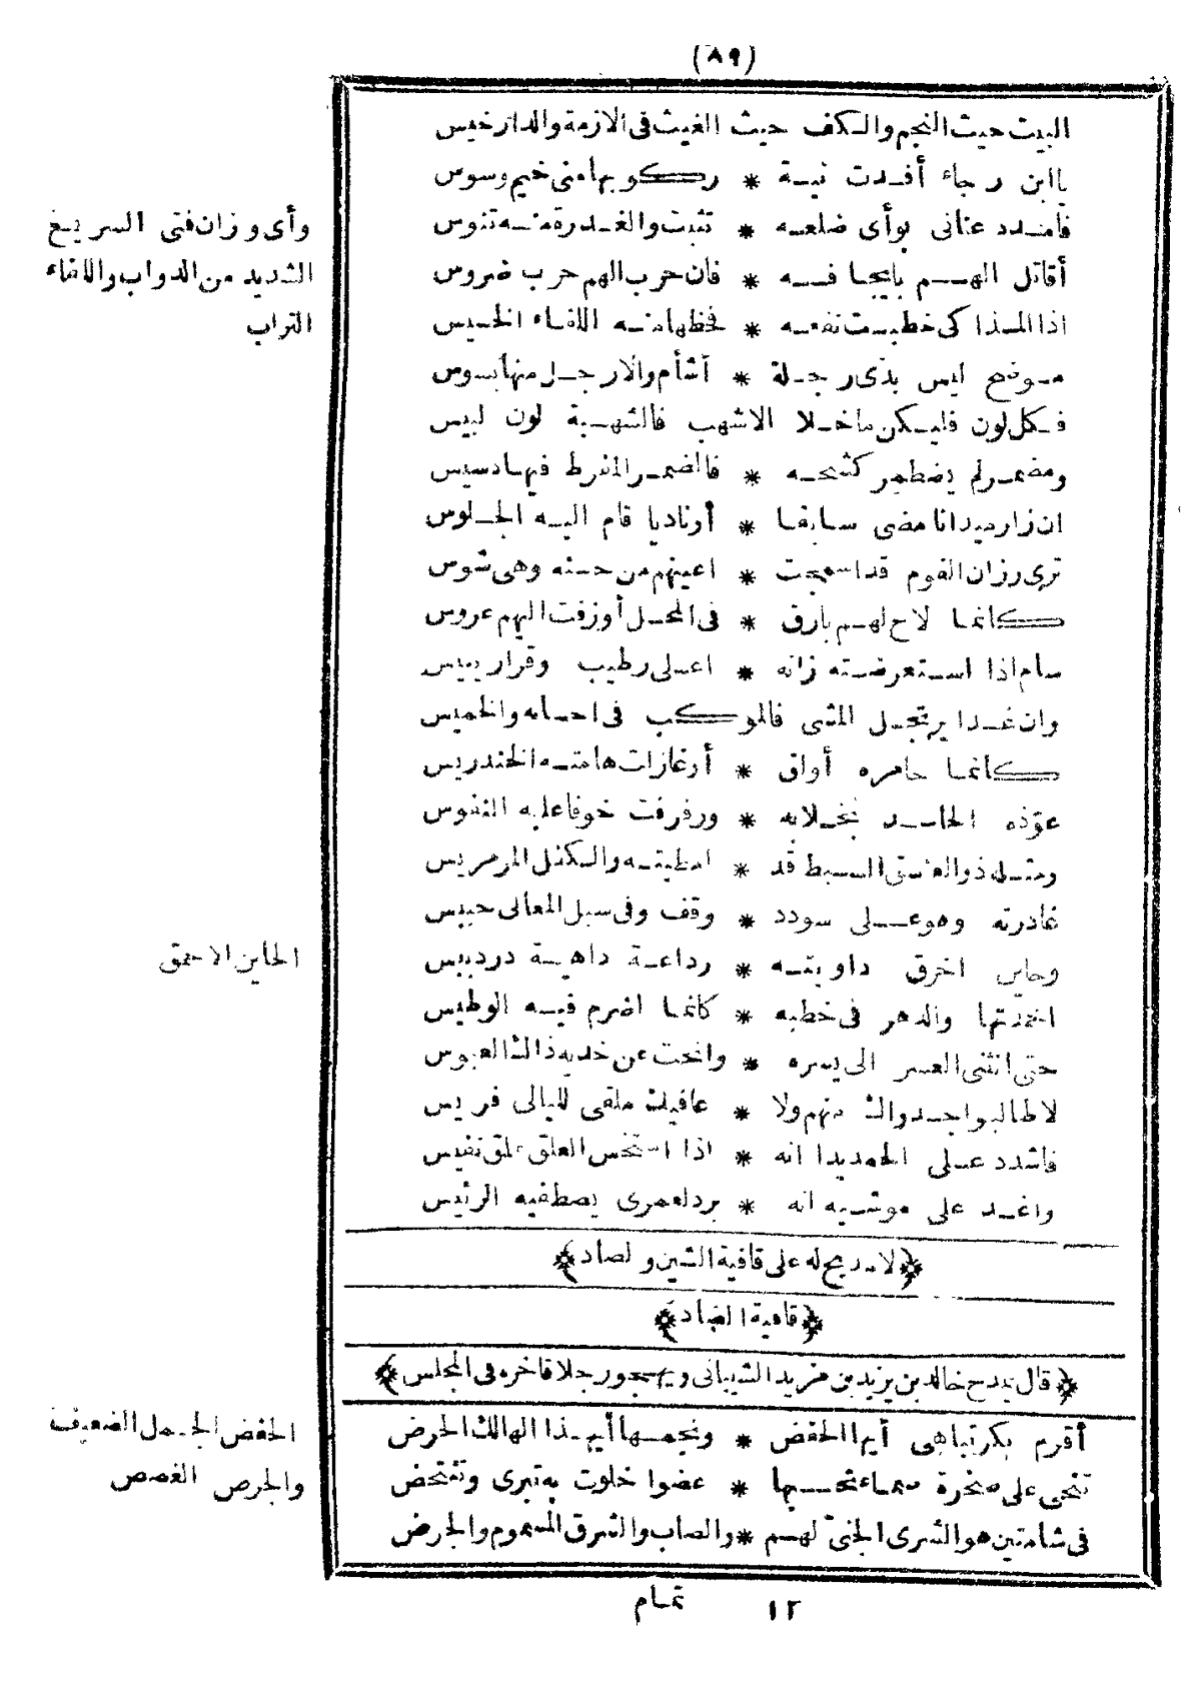 (٨٩)
البيت حيث النجم والكف حيث الغيث فى الازمة والدار خيس
يا ابن رجاء أفدت نية * ركوبها منى خيم وسوس
فامدد عنانى بوأى ضلعه * تثبت والغدرة منه تنوس
وأى وزان فتى السريع
الشديد من الدواب واللفاء
التراب
أقاتل الهم بايجافه * فان حرب الهم حرب ضروس
اذا المذاكى خطبت نقعه * فحظها منه اللفاء الخسيس
موضح ليس بذى رجلة * أشأم والارجل منها بسوس
فكل لون فليكن ماخلا الاشهب فالشهبة لون لبيس
ومضمر لم يضطمر كشحه * فالضمر المفرط فيها دسيس
ان زار ميدانا مضى سابقا * أو ناديا قام اليه الجلوس
ترى رزان القوم قد اسمحت * اعينهم من حسنه وهى شوس
كانما لاح لهم بارق * فى المحل أو زفت اليهم عروس
سام اذا استعرضته زانه * اعلى رطيب وقرار يبيس
وان غدا يرتجل المشى فالموكب فى احسانه والخميس
كانما خامره أولق * أو غازلت هامته الخندريس
عوّذه الحاسد بخلا به * ورفرفت خوفا عليه النفوس
ومثله ذو العنق السبط قد * امطيته والكفل المرمريس
غادرته وهو على سودد * وقف وفى سبل المعالى حبيس
وحاين اخرق داويته * رداعة داهية دردبيس
الحاين الاحمق
اخمدتها والدهر فى خطبه * كانما اضرم فيه الوطيس
حتى انثنى العسر الى يسره * وانحت عن خديه ذاك العبوس
لا طالبو اجدواك منهم ولا * عافيك ملقى لليالى فريس
فاشدد على الحمد يدا انه * اذا استخس العلق علق نفيس
واغد على موشيه انه * برد لعمرى يصطفيه الرئيس
﴿لا مديح له على قافية الشين والصاد﴾
﴿قافية الضاد﴾
﴿قال يمدح خالد بن يزيد بن مزيد الشيبانى ويهجو رجلا فاخره فى المجلس﴾
أقرم بكر تباهى أيها الحفض * ونجمها أيهذا الهالك الحرض
الحفض الجمل الضعيف
والجرض الغصص
تنحى على صخرة صماء تحسبها * عضوا خلوت به تبرى وتنتحض
فى شامتين هو الشرى الجنىّ لهم * والصاب والشرق المسموم والجرض
١٢ تمام